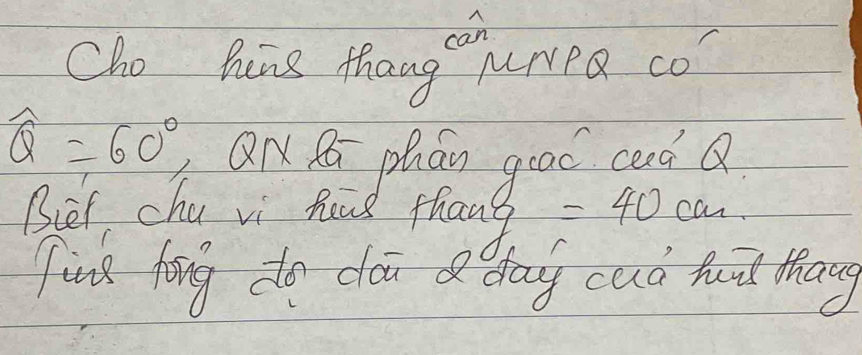 Cho hình thang cân MNPQ có
Q̂ = 60°, QN là phân giác của Q.
Biết, chu vi hình thang = 40 cm.
Tính tổng độ dài 2 đáy của hình thang